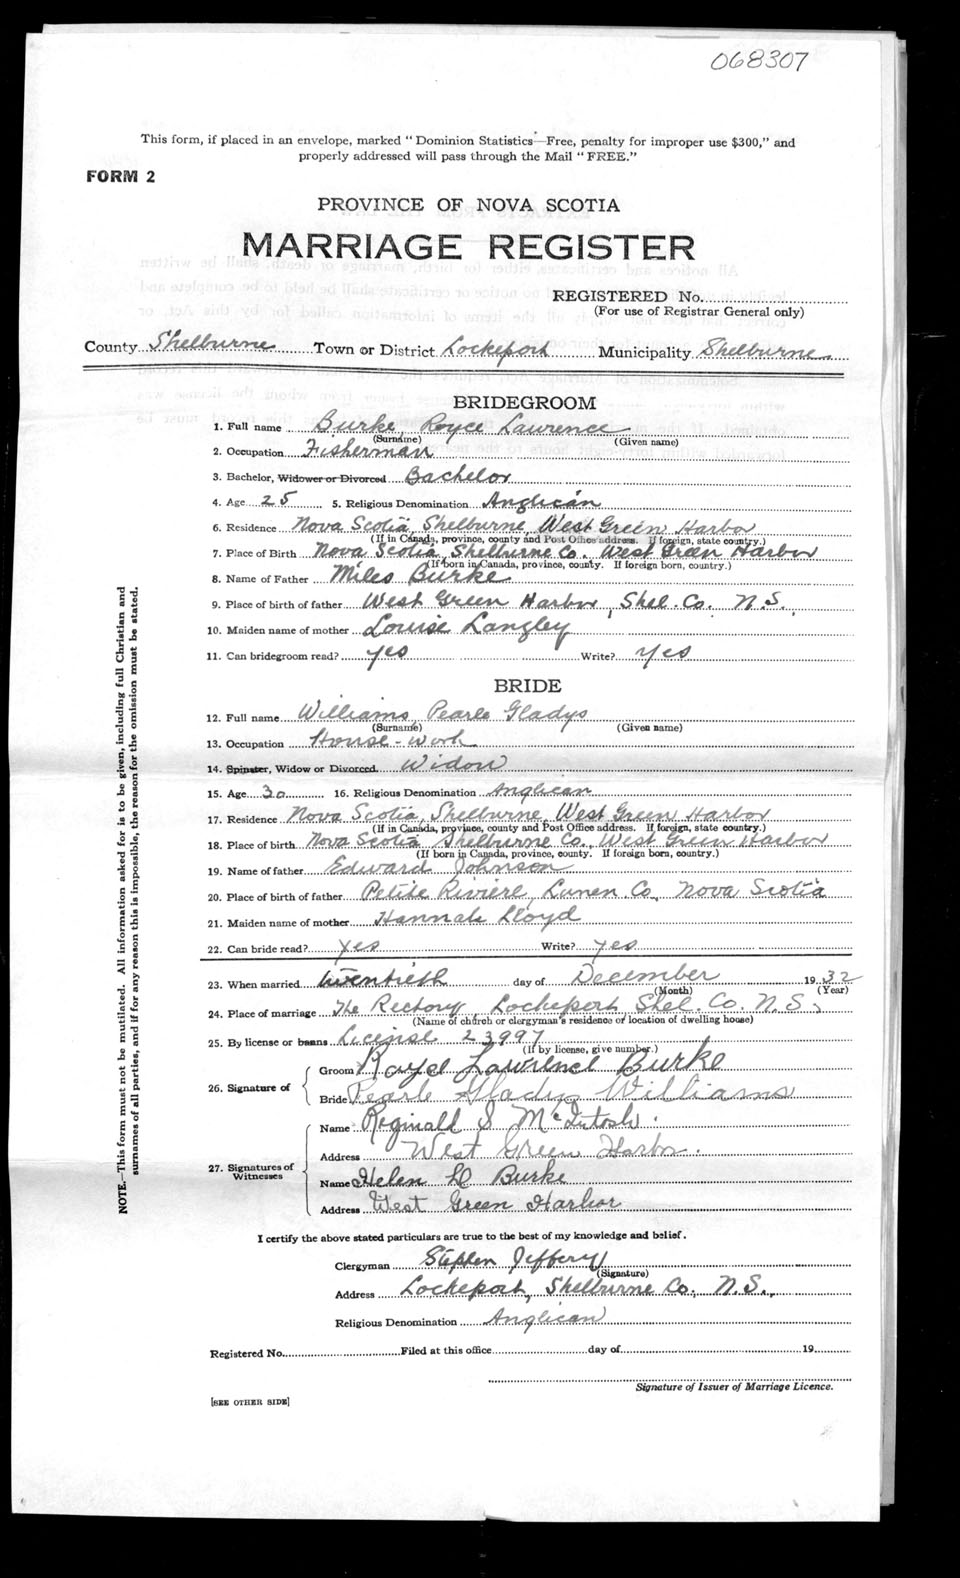 068307
This form, if placed in an envelope, marked " Dominion Statistics—Free, penalty for improper use $300," and
properly addressed will pass through the Mail " FREE."
FORM 2
PROVINCE OF NOVA SCOTIA
MARRIAGE REGISTER
REGISTERED No.
(For use of Registrar General only)
County Shelburne Town or District Lockeport Municipality Shelburne
BRIDEGROOM
1. Full name Burke, Royce Lawrence
(Surname) (Given name)
2. Occupation Fisherman
3. Bachelor, Widower or Divorced Bachelor
4. Age 25 5. Religious Denomination Anglican
6. Residence Nova Scotia, Shelburne, West Green Harbor
(If in Canada, province, county and Post Office address. If foreign, state country.)
7. Place of Birth Nova Scotia, Shelburne Co. West Green Harbor
(If born in Canada, province, county. If foreign born, country.)
8. Name of Father Miles Burke
9. Place of birth of father West Green Harbor, Shel. Co. N.S.
10. Maiden name of mother Louise Langley
11. Can bridegroom read? yes Write? yes
BRIDE
12. Full name Williams, Pearle Gladys
(Surname) (Given name)
13. Occupation House-work
14. Spinster, Widow or Divorced Widow
15. Age 30 16. Religious Denomination Anglican
17. Residence Nova Scotia, Shelburne, West Green Harbor
(If in Canada, province, county and Post Office address. If foreign, state country.)
18. Place of birth Nova Scotia Shelburne Co., West Green Harbor
(If born in Canada, province, county. If foreign born, country.)
19. Name of father Edward Johnson
20. Place of birth of father Petite Riviere, Lunen. Co., Nova Scotia
21. Maiden name of mother Hannah Lloyd
22. Can bride read? yes Write? yes
23. When married twentieth day of December 1932
(Month) (Year)
24. Place of marriage The Rectory, Lockeport Shel. Co. N.S.,
(Name of church or clergyman's residence or location of dwelling house)
25. By license or banns License 23997
(If by license, give number.)
26. Signature of
Groom Royce Lawrence Burke
Bride Pearle Gladys Williams
27. Signatures of Witnesses
Name Reginald S McIntosh.
Address West Green Harbor.
Name Helen D Burke
Address West Green Harbor
I certify the above stated particulars are true to the best of my knowledge and belief.
Clergyman Stephen Jeffery
(Signature)
Address Lockeport, Shelburne Co., N.S.,
Religious Denomination Anglican
Registered No. Filed at this office day of 19
Signature of Issuer of Marriage Licence.
[SEE OTHER SIDE]
NOTE.—This form must not be mutilated. All information asked for is to be given, including full Christian and
surnames of all parties, and if for any reason this is impossible, the reason for the omission must be stated.